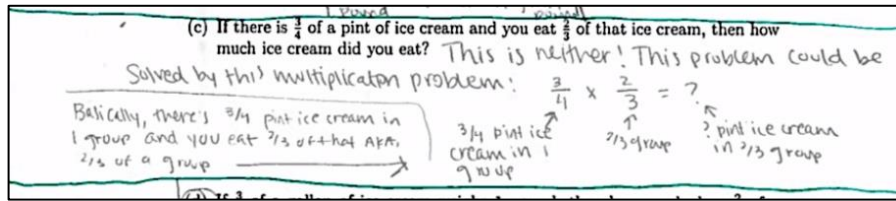 (c) If there is 3/4 of a pint of ice cream and you eat 2/3 of that ice cream, then how
much ice cream did you eat? This is neither! This problem could be
Solved by this multiplicaton problem: 3/4 x 2/3 = ?
Basically, there's 3/4 pint ice cream in
1 group and you eat 2/3 of that AKA,
2/3 of a group
3/4 pint ice
cream in 1
group
2/3 group
? pint ice cream
in 2/3 group